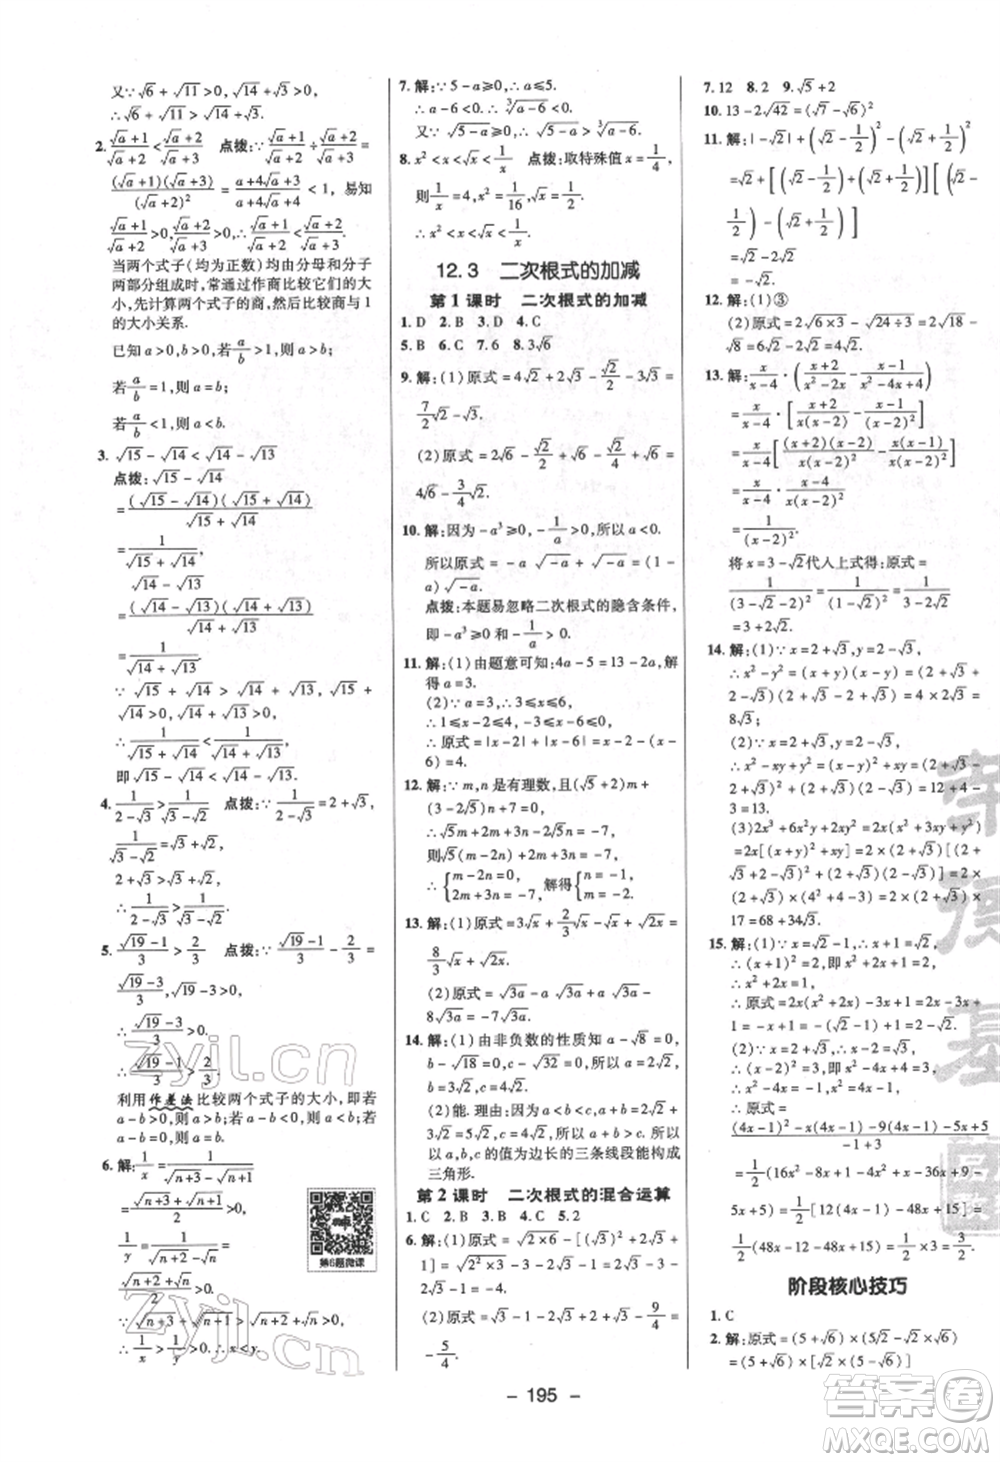 又∵√6+√11>0,√14+√3>0,
∴√6+√11>√14+√3.
2. (√a+1)/(√a+2)<(√a+2)/(√a+3) 点拨:∵(√a+1)/(√a+2)÷(√a+2)/(√a+3)=
(√a+1)(√a+3)/(√a+2)²=(a+4√a+3)/(a+4√a+4)<1, 易知
(√a+1)/(√a+2)>0,(√a+2)/(√a+3)>0,∴(√a+1)/(√a+2)<(√a+2)/(√a+3).
当两个式子(均为正数)均由分母和分子
两部分组成时,常通过作商比较它们的大
小,先计算两个式子的商,然后比较商与1
的大小关系.
已知a>0,b>0,若a/b>1,则a>b;
若a/b=1,则a=b;
若a/b<1,则a<b.
3. √15-√14<√14-√13
点拨:√15-√14
=(√15-√14)(√15+√14)/(√15+√14)
=1/(√15+√14),
√14-√13
=(√14-√13)(√14+√13)/(√14+√13)
=1/(√14+√13).
∵√15+√14>√14+√13>0,
∴1/(√15+√14)<1/(√14+√13),
即√15-√14<√14-√13.
4. 1/(2-√3)>1/(√3-√2) 点拨:∵1/(2-√3)=2+√3,
1/(√3-√2)=√3+√2,
2+√3>√3+√2,
∴1/(2-√3)>1/(√3-√2).
5. (√19-1)/3>2/3 点拨:∵(√19-1)/3-2/3=
(√19-3)/3,√19>√9=3,∴√19-3>0,
∴(√19-3)/3>0.
∴(√19-1)/3>2/3.
利用作差法比较两个式子的大小,即若
a-b>0,则a>b;若a-b<0,则a<b;若
a-b=0,则a=b.
6. 解:1/x=(√(n+3)+√(n+1))/2,
∵(√(n+3)+√(n+1))/2>0,
1/y=1/(√(n+2)-√n)=
(√(n+2)+√n)/2>0,
∵√(n+3)+√(n+1)>√(n+2)+√n>0,
∴1/x>1/y>0,∴x<y.
第6题微课
7. 解:∵5-a≥0,∴a≤5.
∴a-6<0.∴³√(a-6)<0.
又∵√(5-a)≥0,∴√(5-a)>³√(a-6).
8. x²<x<√x<1/x 点拨:取特殊值x=1/4,
则1/x=4,x²=1/16,√x=1/2,
∴x²<x<√x<1/x.
12.3 二次根式的加减
第1课时 二次根式的加减
1. D 2. B 3. D 4. C
5. B 6. C 7. 6 8. 3√6
9. 解:(1)原式=4√2+2√3-√2/2-3√3=
7/2√2-√3.
(2)原式=2√6-√2/2-√2/4+2√6=
4√6-3/4√2.
10. 解:因为-a³≥0,-1/a>0,所以a<0.
所以原式=-a√-a+√-a=(1-
a)√-a.
点拨:本题易忽略二次根式的隐含条件,
即-a³≥0和-1/a>0.
11. 解:(1)由题意可知:4a-5=13-2a,解
得a=3.
(2)∵a=3,∴3≤x≤6,
∴1≤x-2≤4,-3≤x-6≤0,
∴原式=|x-2|+|x-6|=x-2-(x-
6)=4.
12. 解:∵m,n是有理数,且(√5+2)m+
(3-2√5)n+7=0,
∴√5m+2m+3n-2√5n=-7,
则√5(m-2n)+2m+3n=-7,
∴{m-2n=0, 2m+3n=-7, 解得{n=-1, m=-2.
13. 解:(1)原式=3√x+2/3√x-√x+√2x=
8/3√x+√2x.
(2)原式=√3a-2√3a+2√3a-
8√3a=-7√3a.
14. 解:(1)由非负数的性质知a-√8=0,
b-√18=0,c-√32=0,所以a=√8=2√2,
b=3√2,c=4√2.
(2)能. 理由:由(1)知a<b<c,
因为2√2+3√2>4√2,即a+b>c,所
以,以a,b,c的值为边长的三条线段能构成
三角形.
第2课时 二次根式的混合运算
1. C 2. B 3. C 4. C 5. 2
6. 解:(1)原式=√(2×6)-[(√2)²-2√3+
1]=√(2²×3)-(2-2√3+1)=2√3-3+
2√3=4√3-3.
(2)原式=√3-1-2√3+2+√3-9/4=
-5/4.
7. 12 8. 2 9. √5+2
10. 13-2√42=(√7-√6)²
11. 解:|-√2|+(√2-1/2)²-(√2+1/2)²
=√2+[(√2-1/2)+(√2+1/2)][(√2-
1/2)-(√2+1/2)]
=√2-2√2
=-√2.
12. 解:(1)③
(2)原式=2√(6×3)-√(24÷3)=2√18-
√8=6√2-2√2=4√2.
13. 解:x/(x-4)·((x+2)/(x²-2x)-(x-1)/(x²-4x+4))
=x/(x-4)·[(x+2)/x(x-2)-(x-1)/(x-2)²]
=x/(x-4)[(x+2)(x-2)/x(x-2)²-x(x-1)/x(x-2)²]
=x/(x-4)·(x-4)/x(x-2)²
=1/(x-2)².
将x=3-√2代入上式得:原式=
1/(3-√2-2)²=1/(1-√2)²=1/(3-2√2)
=3+2√2.
14. 解:(1)∵x=2+√3,y=2-√3,
∴x²-y²=(x+y)(x-y)=(2+√3+
2-√3)(2+√3-2+√3)=4×2√3=
8√3;
(2)∵x=2+√3,y=2-√3,
∴x²-xy+y²=(x-y)²+xy=(2+√3-
2+√3)²+(2+√3)(2-√3)=12+1
=13.
(3)2x³+6x²y+2xy²=2x(x²+3xy+y²)
=2x[(x+y)²+xy]=2×(2+√3)[(2+
√3+2-√3)²+(2+√3)(2-√3)]=2×
(2+√3)×(4²+4-3)=2×(2+√3)×
17=68+34√3.
15. 解:(1)∵x=√2-1,∴x+1=√2.
∴(x+1)²=2,即x²+2x+1=2.
∴x²+2x=1.
∴原式=2(x²+2x)-1=2×1-1=1.
(2)∵x=2+√3,∴x-2=√3.
∴(x-2)²=3,即x²-4x+4=3.
∴x²-4x=-1,x²=4x-1.
∴原式=
[(4x-1)²-x(4x-1)-9(4x-1)-5x+5]/(-1+3)
=1/2(16x²-8x+1-4x²+x-36x+9-
5x+5)=1/2(12x²-48x+15)
=1/2(48x-12-48x+15)=1/2×3=3/2.
阶段核心技巧
1. C
2. 解:原式=(5+√6)×(5√2-√2×√6)
=(5+√6)×[√2×(5-√6)]
- 195 -
zyjl.cn
zyjl.cn
答案圈
MXQE.COM